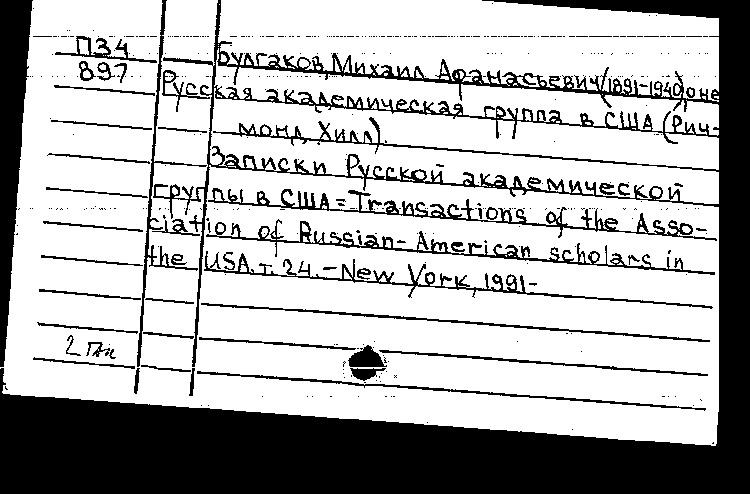 П34
897
Булгаков, Михаил Афанасьевич (1891-1940), о не
Русская академическая группа в США (Рич-
монд, Хилл).
Записки Русской академической
группы в США = Transactions of the Asso-
ciation of Russian-American scholars in
the USA. т. 24. - New York, 1991-
2